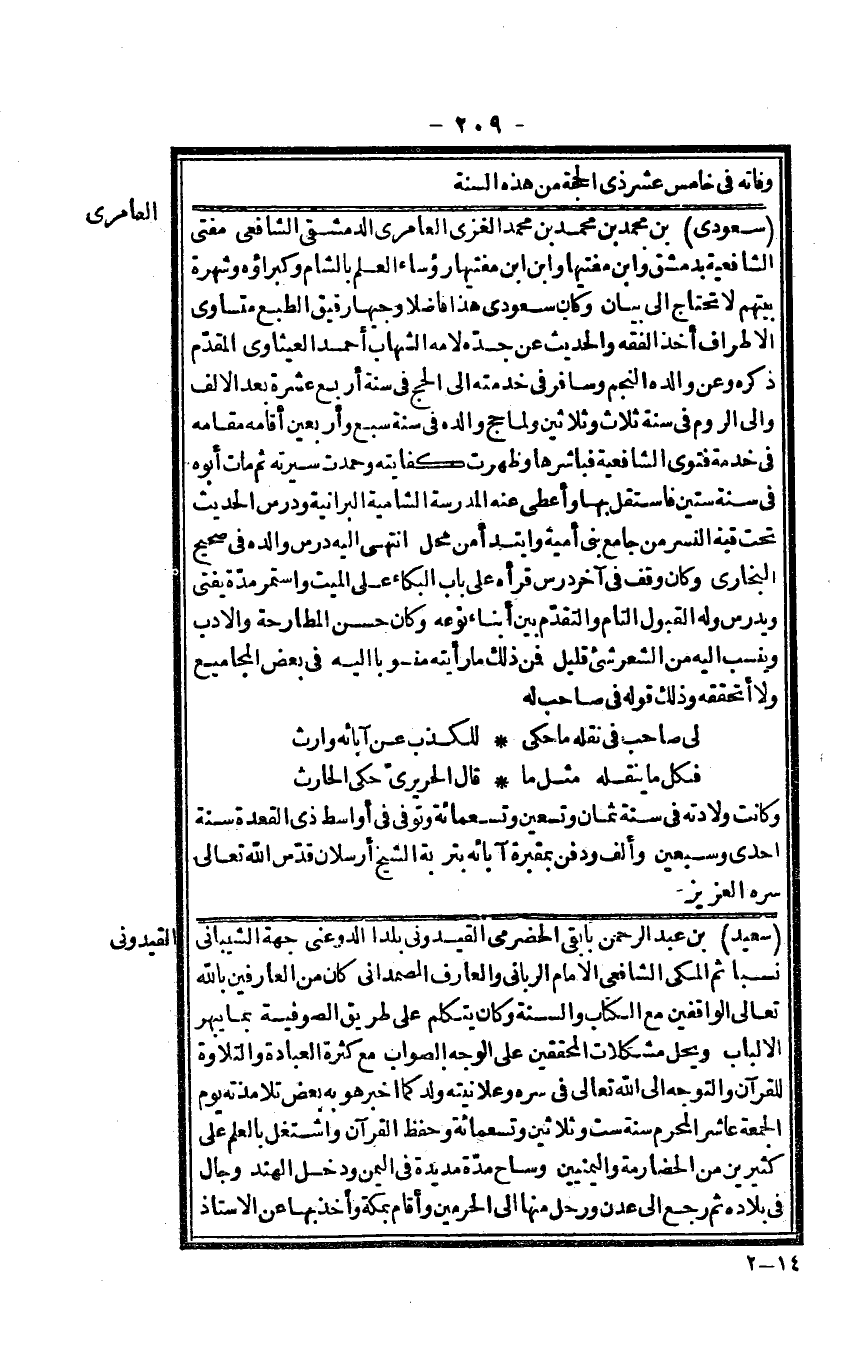 - ٢٠٩ -
وفاته فى خامس عشر ذى الحجة من هذه السنة
العامرى
(سعودى) بن محمد بن محمد بن محمد الغزى العامرى الدمشقى الشافعى مفتى
الشافعية بدمشق وابن مفتيها وابن ابن مفتيها رؤساء العلم بالشام وكبراؤه وشهرة
بيتهم لا تحتاج الى بيان وكان سعودى هذا فاضلا وجيها رقيق الطبع متساوى
الاطراف أخذ الفقه والحديث عن جدّه لامه الشهاب أحمد العيثاوى المقدّم
ذكره وعن والده النجم وسافر فى خدمته الى الحج فى سنة أربع عشرة بعد الالف
والى الروم فى سنة ثلاث وثلاثين ولما حج والده فى سنة سبع وأربعين أقامه مقامه
فى خدمة فتوى الشافعية فباشرها وظهرت كفايته وحمدت سيرته ثم مات أبوه
فى سنة ستين فاستقل بها وأعطى عنه المدرسة الشامية البرانية ودرس الحديث
تحت قبة النسر من جامع بنى أمية وابتدأ من محل انتهى اليه درس والده فى صحيح
البخارى وكان وقف فى آخر درس قرأه على باب البكاء على الميت واستمر مدّة يفتى
ويدرس وله القبول التام والتقدّم بين أبناء نوعه وكان حسن المطارحة والادب
وينسب اليه من الشعر شئ قليل فمن ذلك ما رأيته منسوبا اليه فى بعض المجاميع
ولا أتحققه وذلك قوله فى صاحب له
لى صاحب فى نقله ما حكى * للكذب عن آبائه وارث
فكل ما ينقله مثل ما * قال الحريرىّ حكى الحارث
وكانت ولادته فى سنة ثمان وتسعين وتسعمائة وتوفى فى أواسط ذى القعدة سنة
احدى وسبعين وألف ودفن بمقبرة آبائه بتربة الشيخ أرسلان قدّس الله تعالى
سره العزيز
القيدونى
(سعيد) بن عبد الرحمن بابقى الحضرمى القيدونى بلدا الدوعنى جهة الشيبانى
نسبا ثم المكى الشافعى الامام الربانى والعارف الصمدانى كان من العارفين بالله
تعالى الواقفين مع الكتاب والسنة وكان يتكلم على طريق الصوفية بما يبهر
الالباب ويحل مشكلات المحققين على الوجه الصواب مع كثرة العبادة والتلاوة
للقرآن والتوجه الى الله تعالى فى سره وعلانيته ولد كما اخبر هو به بعض تلامذته يوم
الجمعة عاشر المحرم سنة ست وثلاثين وتسعمائة وحفظ القرآن واشتغل بالعلم على
كثيرين من الحضارمة واليمنيين وساح مدّة مديدة فى اليمن ودخل الهند وجال
فى بلاده ثم رجع الى عدن ورحل منها الى الحرمين وأقام بمكة وأخذ بها عن الاستاذ
١٤-٢